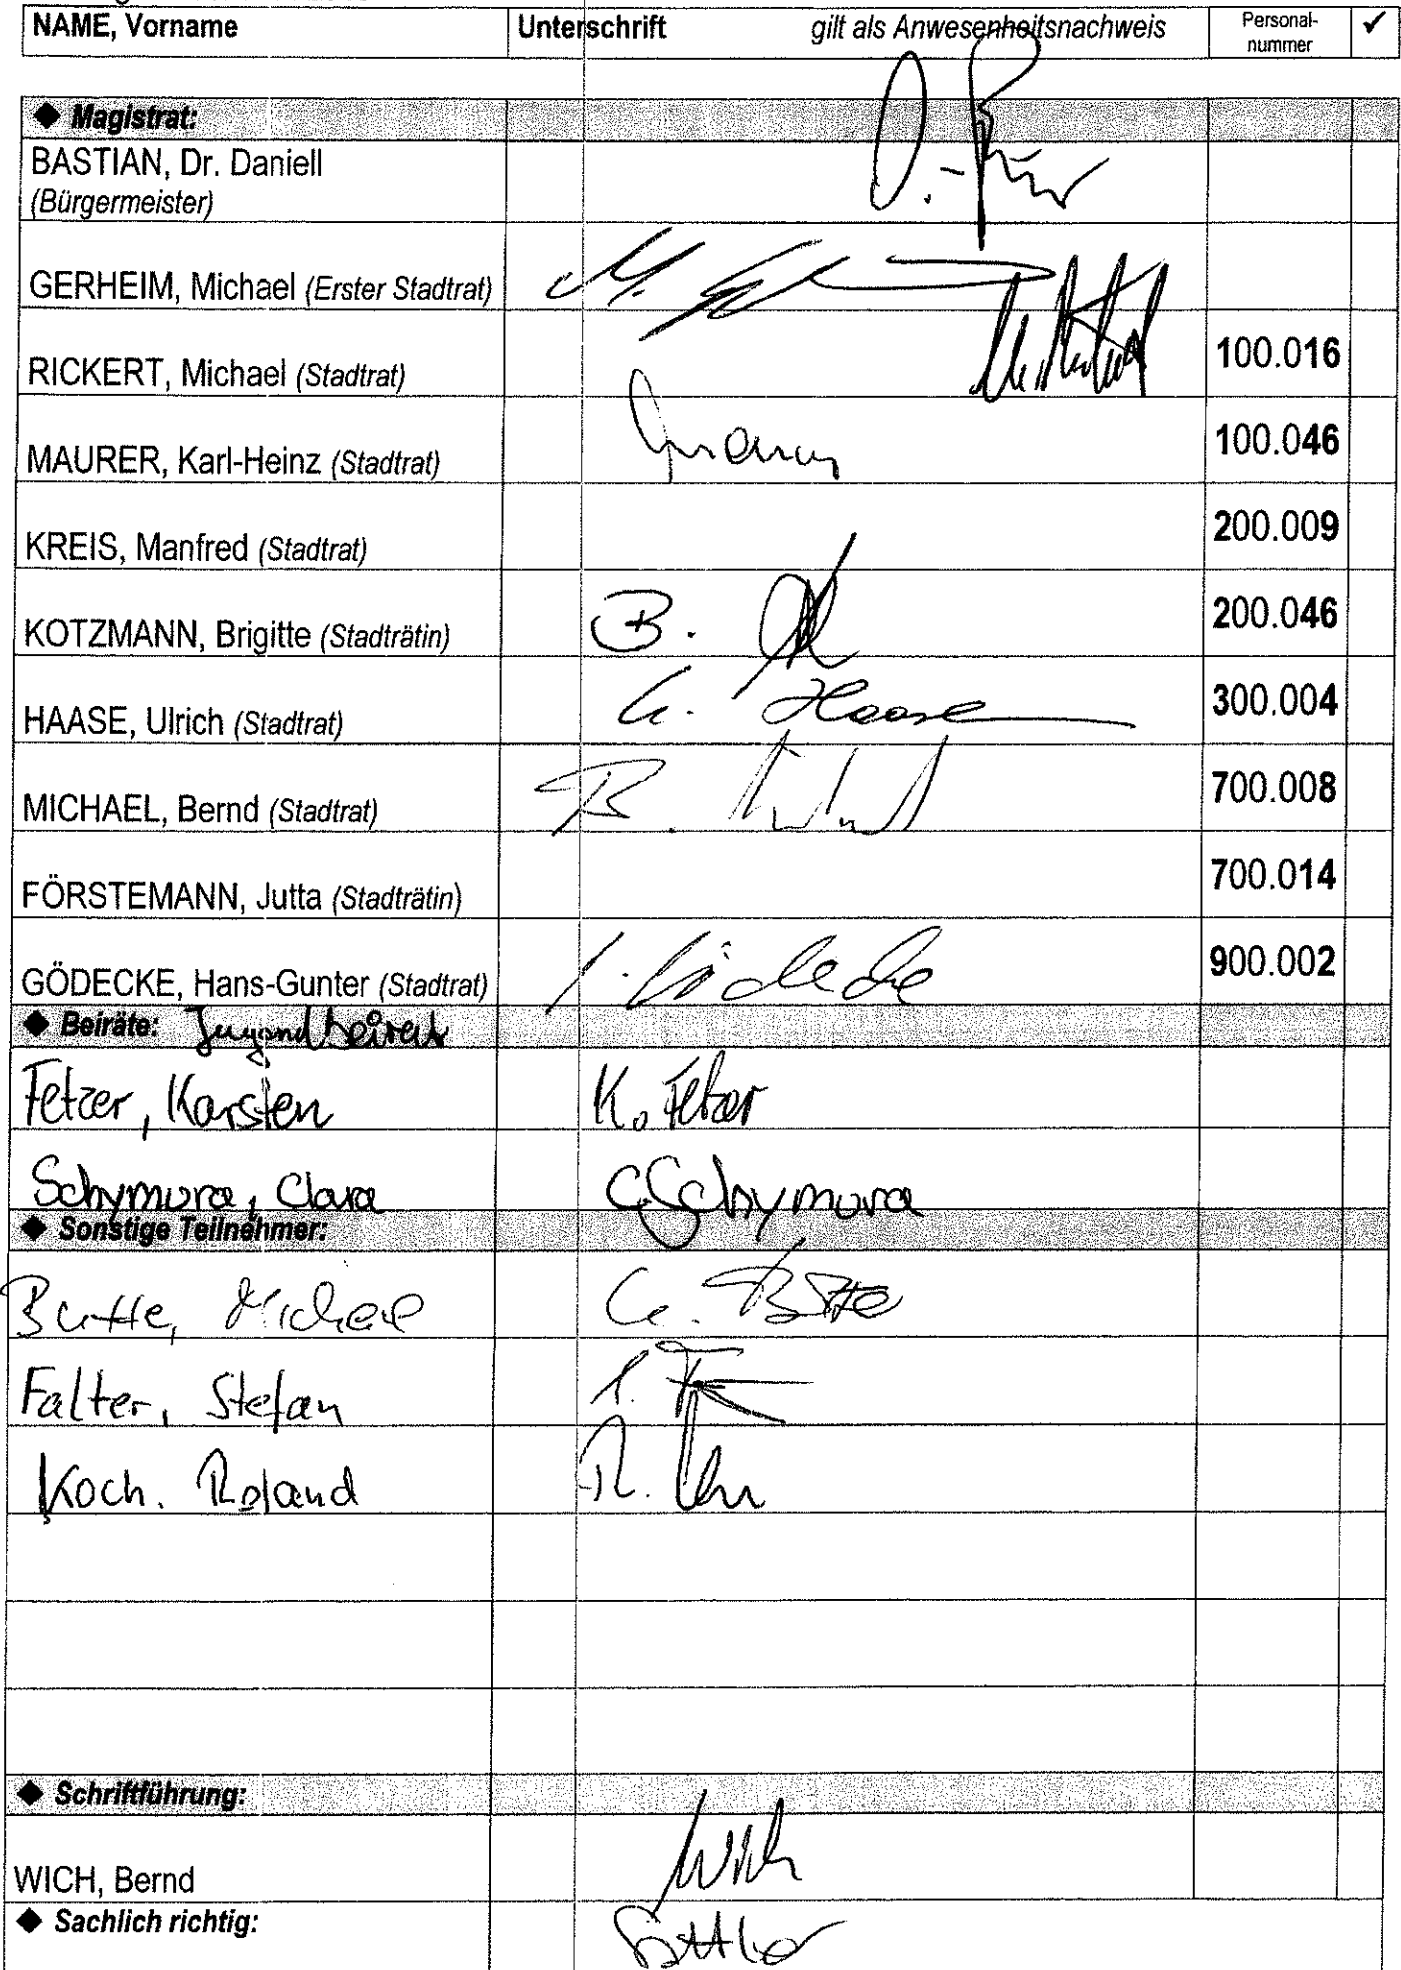 NAME, Vorname Unterschrift gilt als Anwesenheitsnachweis Personal-nummer ✓
◆ Magistrat:
BASTIAN, Dr. Daniell
(Bürgermeister)
GERHEIM, Michael (Erster Stadtrat) M.
RICKERT, Michael (Stadtrat) 100.016
MAURER, Karl-Heinz (Stadtrat) 100.046
KREIS, Manfred (Stadtrat) 200.009
KOTZMANN, Brigitte (Stadträtin) B. 200.046
HAASE, Ulrich (Stadtrat) Haase 300.004
MICHAEL, Bernd (Stadtrat) B. 700.008
FÖRSTEMANN, Jutta (Stadträtin) 700.014
GÖDECKE, Hans-Gunter (Stadtrat) 900.002
◆ Beiräte: Jugendbeirat
Fetzer, Karsten K. Fetzer
Schymura, Clara C. Schymura
◆ Sonstige Teilnehmer:
Butte, Michael
Falter, Stefan
Koch. Roland R.
◆ Schriftführung:
WICH, Bernd Wich
◆ Sachlich richtig: